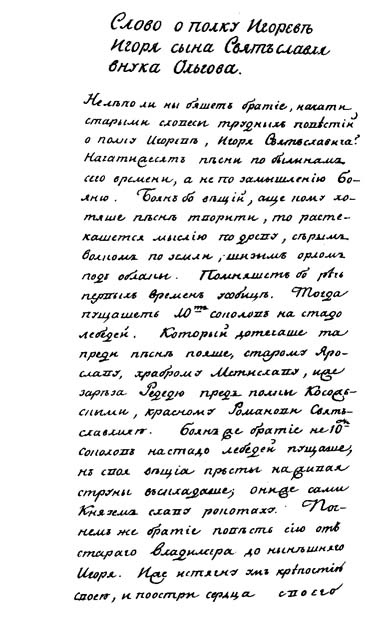 Слово о полку Игоревѣ
Игоря сына Святъславля
внука Ольгова.
Нелѣпо ли ны бяшетъ братіе, начати
старыми словеси трудныхъ повѣстій
о полку Игоревѣ, Игоря Святъславича?
Начатижесятъ пѣсни по былинамъ
сего времени, а не по замышленію Бо-
яню. Боянъ бо вѣщій, аще кому хо-
тяше пѣснь творити, то расте-
кашется мыслію по древу, сѣрымъ
волкомъ по земли, шизымъ орломъ
подъ облакы. Помняшеть бо рѣчь
первыхъ временъ усобицѣ. Тогда
пущашеть 10ть соколовь на стадо
лебедей. Который дотечаше та
преди пѣснь пояше, старому Яро-
славу, храброму Мстиславу, иже
зарѣза Редедю предъ полкы Касожь-
скими, красному Романови Святъ-
славличю. Боянъ же братіе не 10ть
соколовь на стадо лебедей пущаше,
нъ своя вѣщіа пръсты на живая
струны въскладаше; они же сами
Княземъ славу рокотаху. Поч-
немъ же братіе повѣсть сію отъ
стараго Владимера до нынѣшняго
Игоря. Иже истягну умъ крѣпостію
своею, и поостри сердца своего